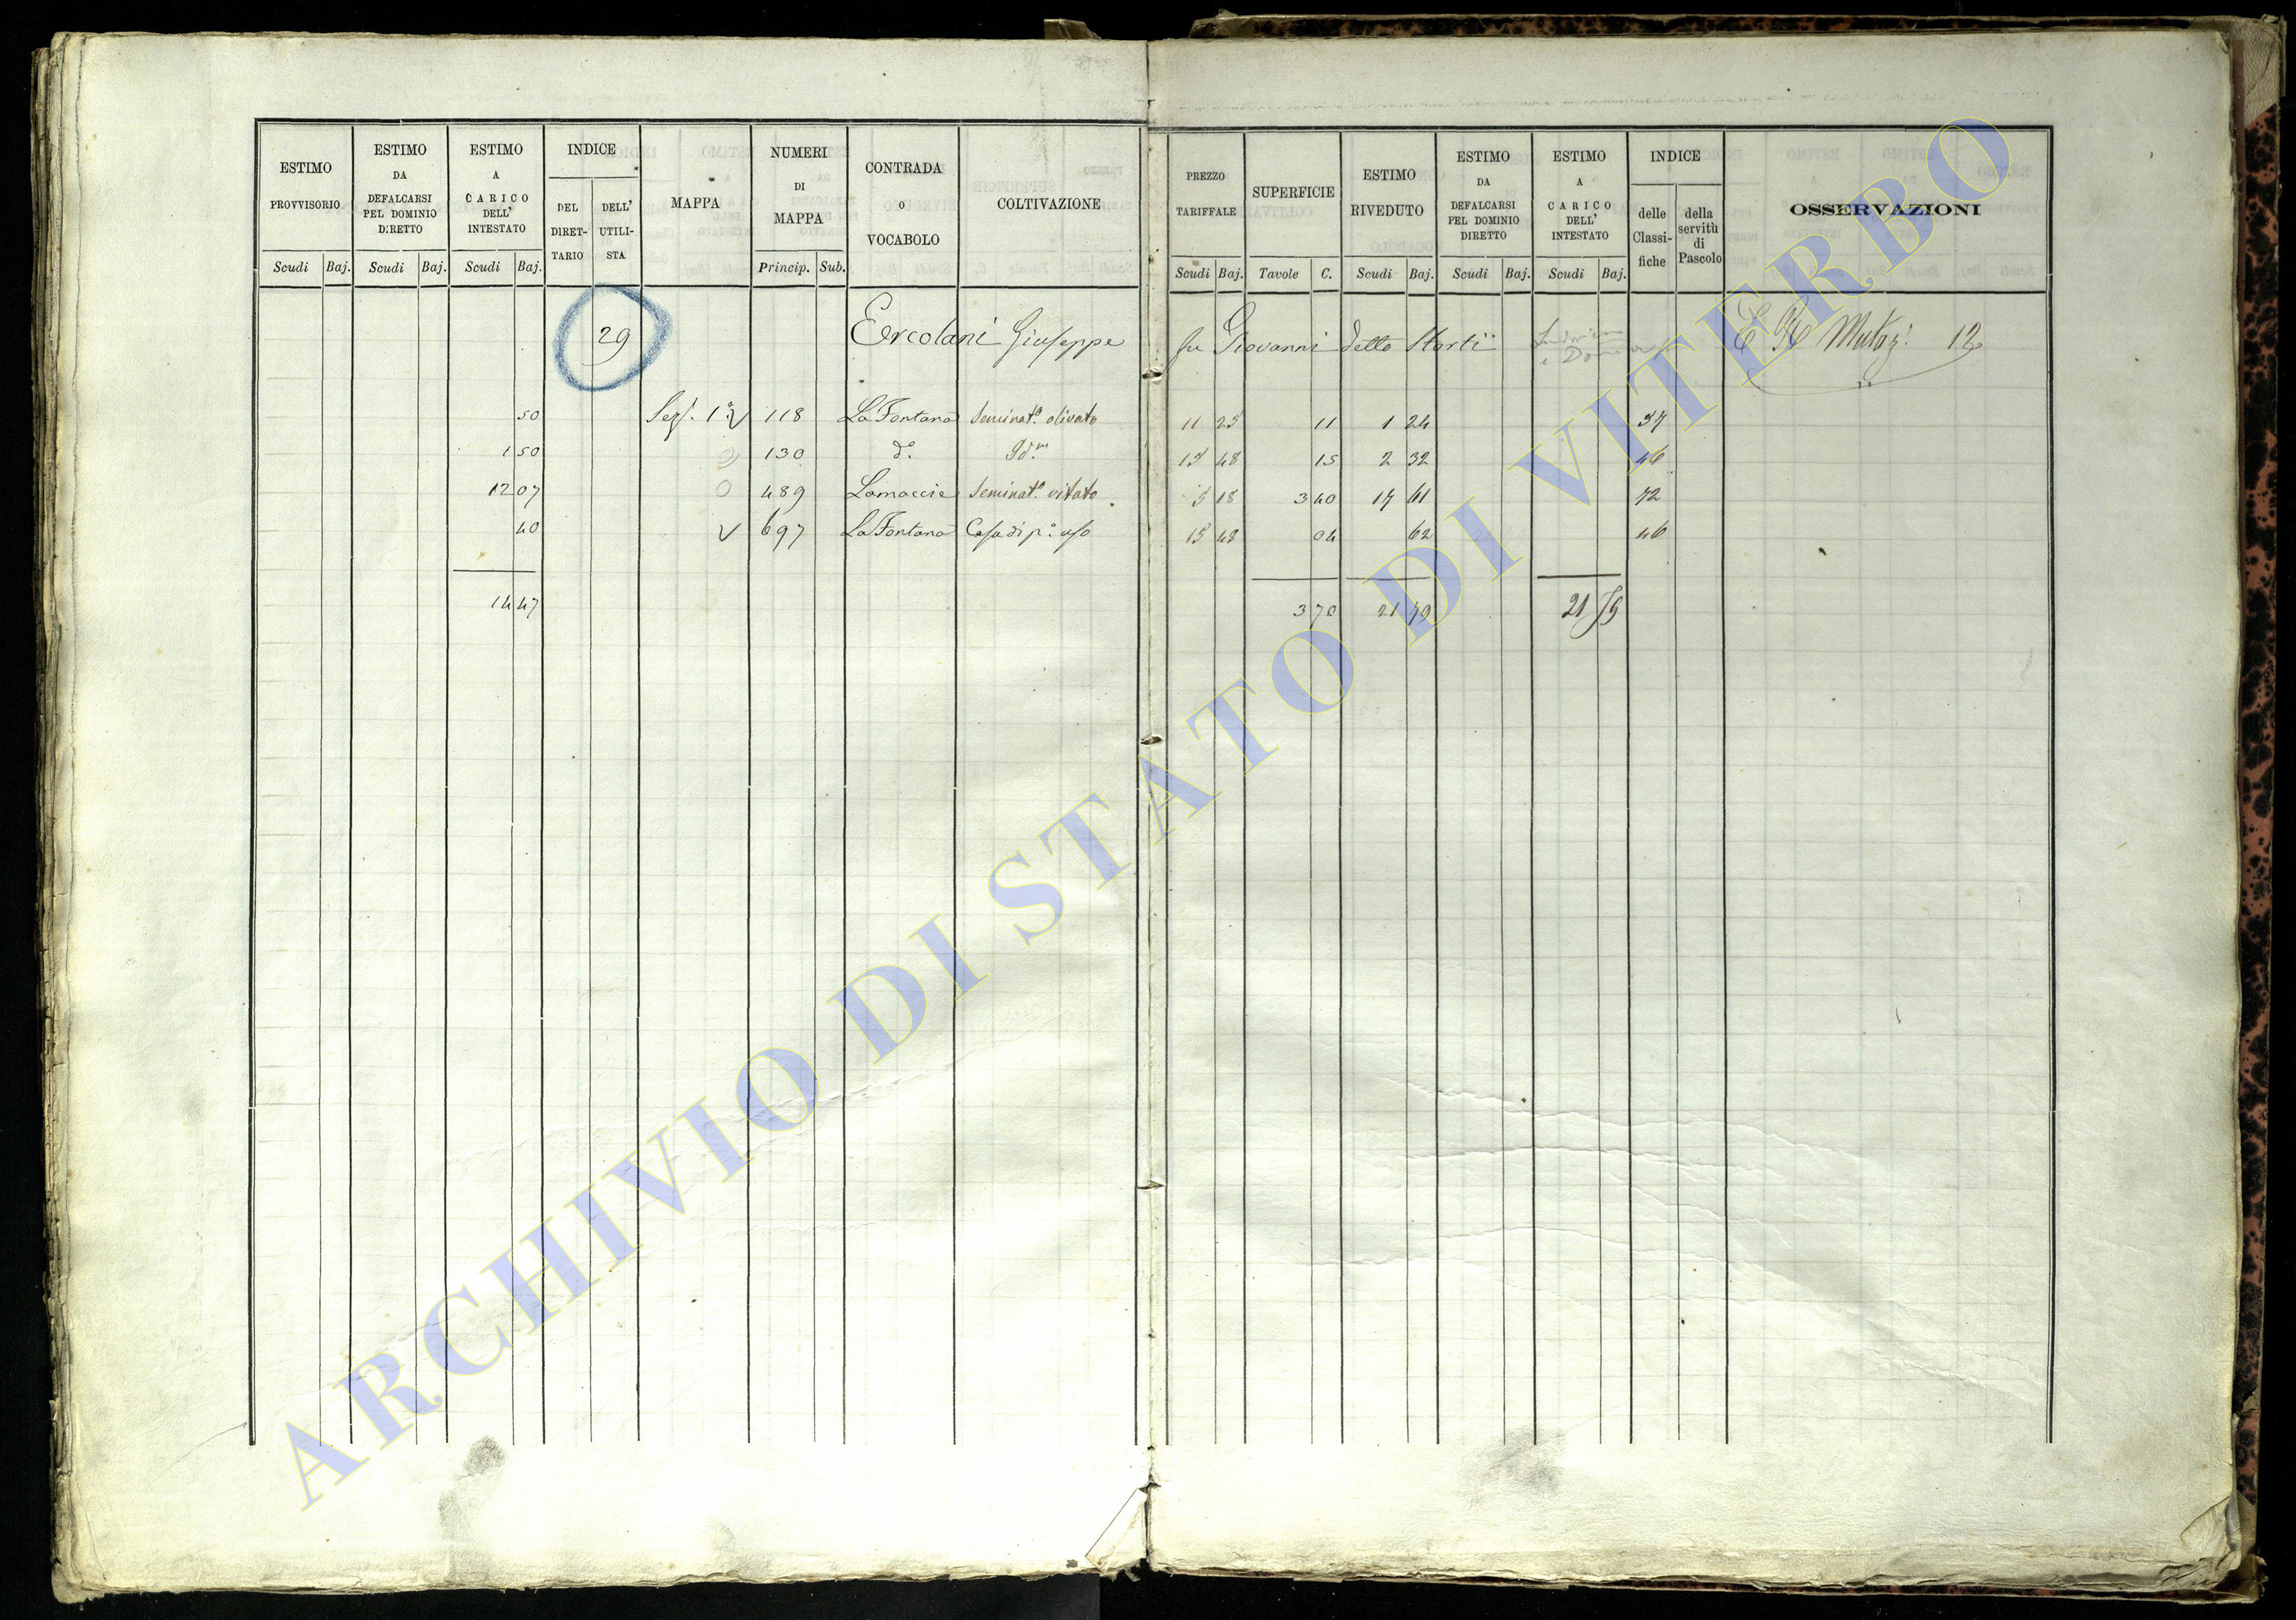 ESTIMO PROVVISORIO | ESTIMO DA DEFALCARSI PEL DOMINIO DIRETTO | ESTIMO A CARICO DELL' INTESTATO | INDICE | MAPPA | NUMERI DI MAPPA | CONTRADA O VOCABOLO | COLTIVAZIONE | PREZZO TARIFFALE | SUPERFICIE | ESTIMO RIVEDUTO | ESTIMO DA DEFALCARSI PEL DOMINIO DIRETTO | ESTIMO A CARICO DELL' INTESTATO | INDICE | OSSERVAZIONI
DEL DIRETTARIO | DELL' UTILISTA | delle Classifiche | della servitù di Pascolo
Scudi | Baj. | Scudi | Baj. | Scudi | Baj. | Princip. | Sub. | Scudi | Baj. | Tavole | C. | Scudi | Baj. | Scudi | Baj. | Scudi | Baj.
29 Ercolani Giuseppe fu Giovanni detto Storti 12
50 Sez. 1ª 118 La Fontana Seminat.º olivato 11 25 11 1 24 37
1 50 130 d.º Id.m 15 48 15 2 32 46
12 07 489 Lamaccie Seminat.º vitato 5 18 3 40 17 61 72
40 697 La Fontana Casa di p.º uso 15 48 04 62 46
14 47 3 70 21 79 21 79
ARCHIVIO DI STATO DI VITERBO